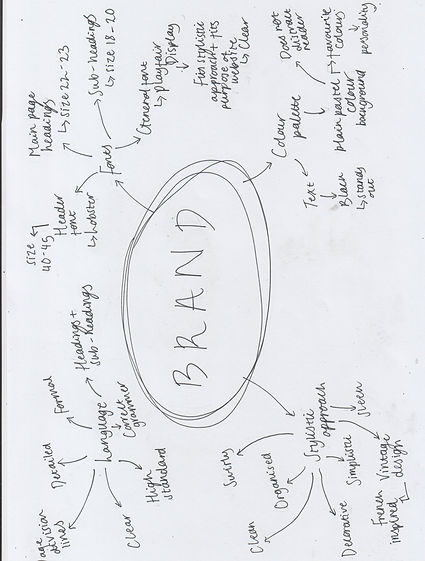 BRAND
Fonts
Main page
headings
↳ size 22-23
Sub-headings
↳ size 18-20
General font
↳ playfair
Display
↓
Fits stylistic
approach + ties
purpose of
website
↳ Clear
Header
font
↳ Lobster
size
40-45
Colour
palette
Does not
distract
reader
plain pastel
colour
background
favourite
colours
↓
personality
Text
↓
Black
↳ stands
out
Language
Headings +
sub-headings
Formal
Detailed
division
lines
Clear
High
standard
correct
grammer
Stylistic
approach
Organised
Clean
Decorative
Simplistic
French Vintage
inspired design